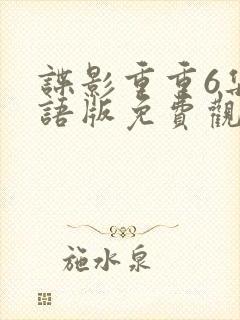 諜影重重6集
語版免費觀
施水泉